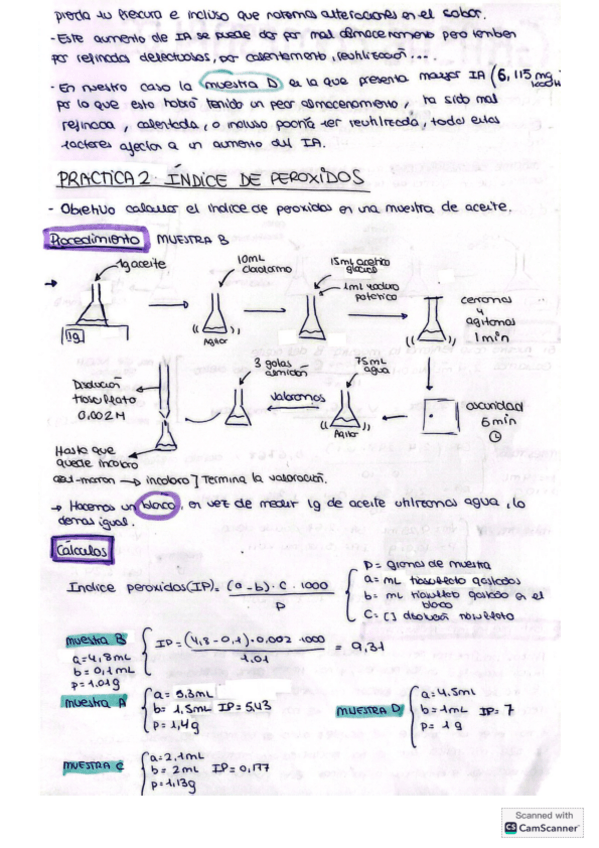 pierda su frescura e incluso que notemos alteraciones en el sabor.
- Este aumento de IA se puede dar por mal almacenamiento pero tambien
por refinados defectuosos, por calentamiento, reutilizados ....
- En nuestro caso la muestra D es la que presenta mayor IA (6,115 mg
por lo que esto habrá tenido un peor almacenamiento, ha sido mal
refinada, calentada, o incluso podría ser reutilizada, todos estos
factores afectan a un aumento del IA.
PRACTICA 2. ÍNDICE DE PEROXIDOS
- Objetivo calcular el indice de peroxidos en una muestra de aceite.
Procedimiento MUESTRA B
1g aceite
10mL cloroformo
15mL acetico glacial
1ml yoduro potasico
1g
Agitar
cerramos y agitamos 1 min
oscuridad 5 min
75mL agua
Agitar
valoramos
3 gotas almidón
Disolución tiosulfato 0,002M
Hasta que quede incoloro
azul-marron → incoloro ] Termina la valoración.
→ Hacemos un blanco, en vez de medir 1g de aceite utilizamos agua, lo
demas igual.
Cálculos
Indice peroxidos (IP) = (a - b) · C · 1000 / P
P = gramos de muestra
a = mL tiosulfato gastados
b = mL tiosulfato gastado en el blanco
C = [] disolución tiosulfato
muestra B
a = 4,8mL
b = 0,1mL
p = 1.01g
IP = (4,8 - 0,1) · 0,002 · 1000 / 1.01 = 9,31
muestra A
a = 5,3mL
b = 1,5mL IP = 5,43
p = 1,4g
MUESTRA D
a = 4.5mL
b = 1mL IP = 7
p = 1g
MUESTRA C
a = 2.1mL
b = 2mL IP = 0,177
p = 1,13g
Scanned with
CS CamScanner